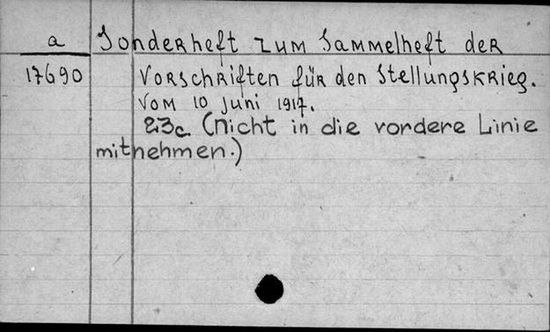 a Sonderheft zum Sammelheft der
17690 Vorschriften für den Stellungskrieg.
Vom 10 Juni 1917.
23c (Nicht in die vordere Linie
mitnehmen.)